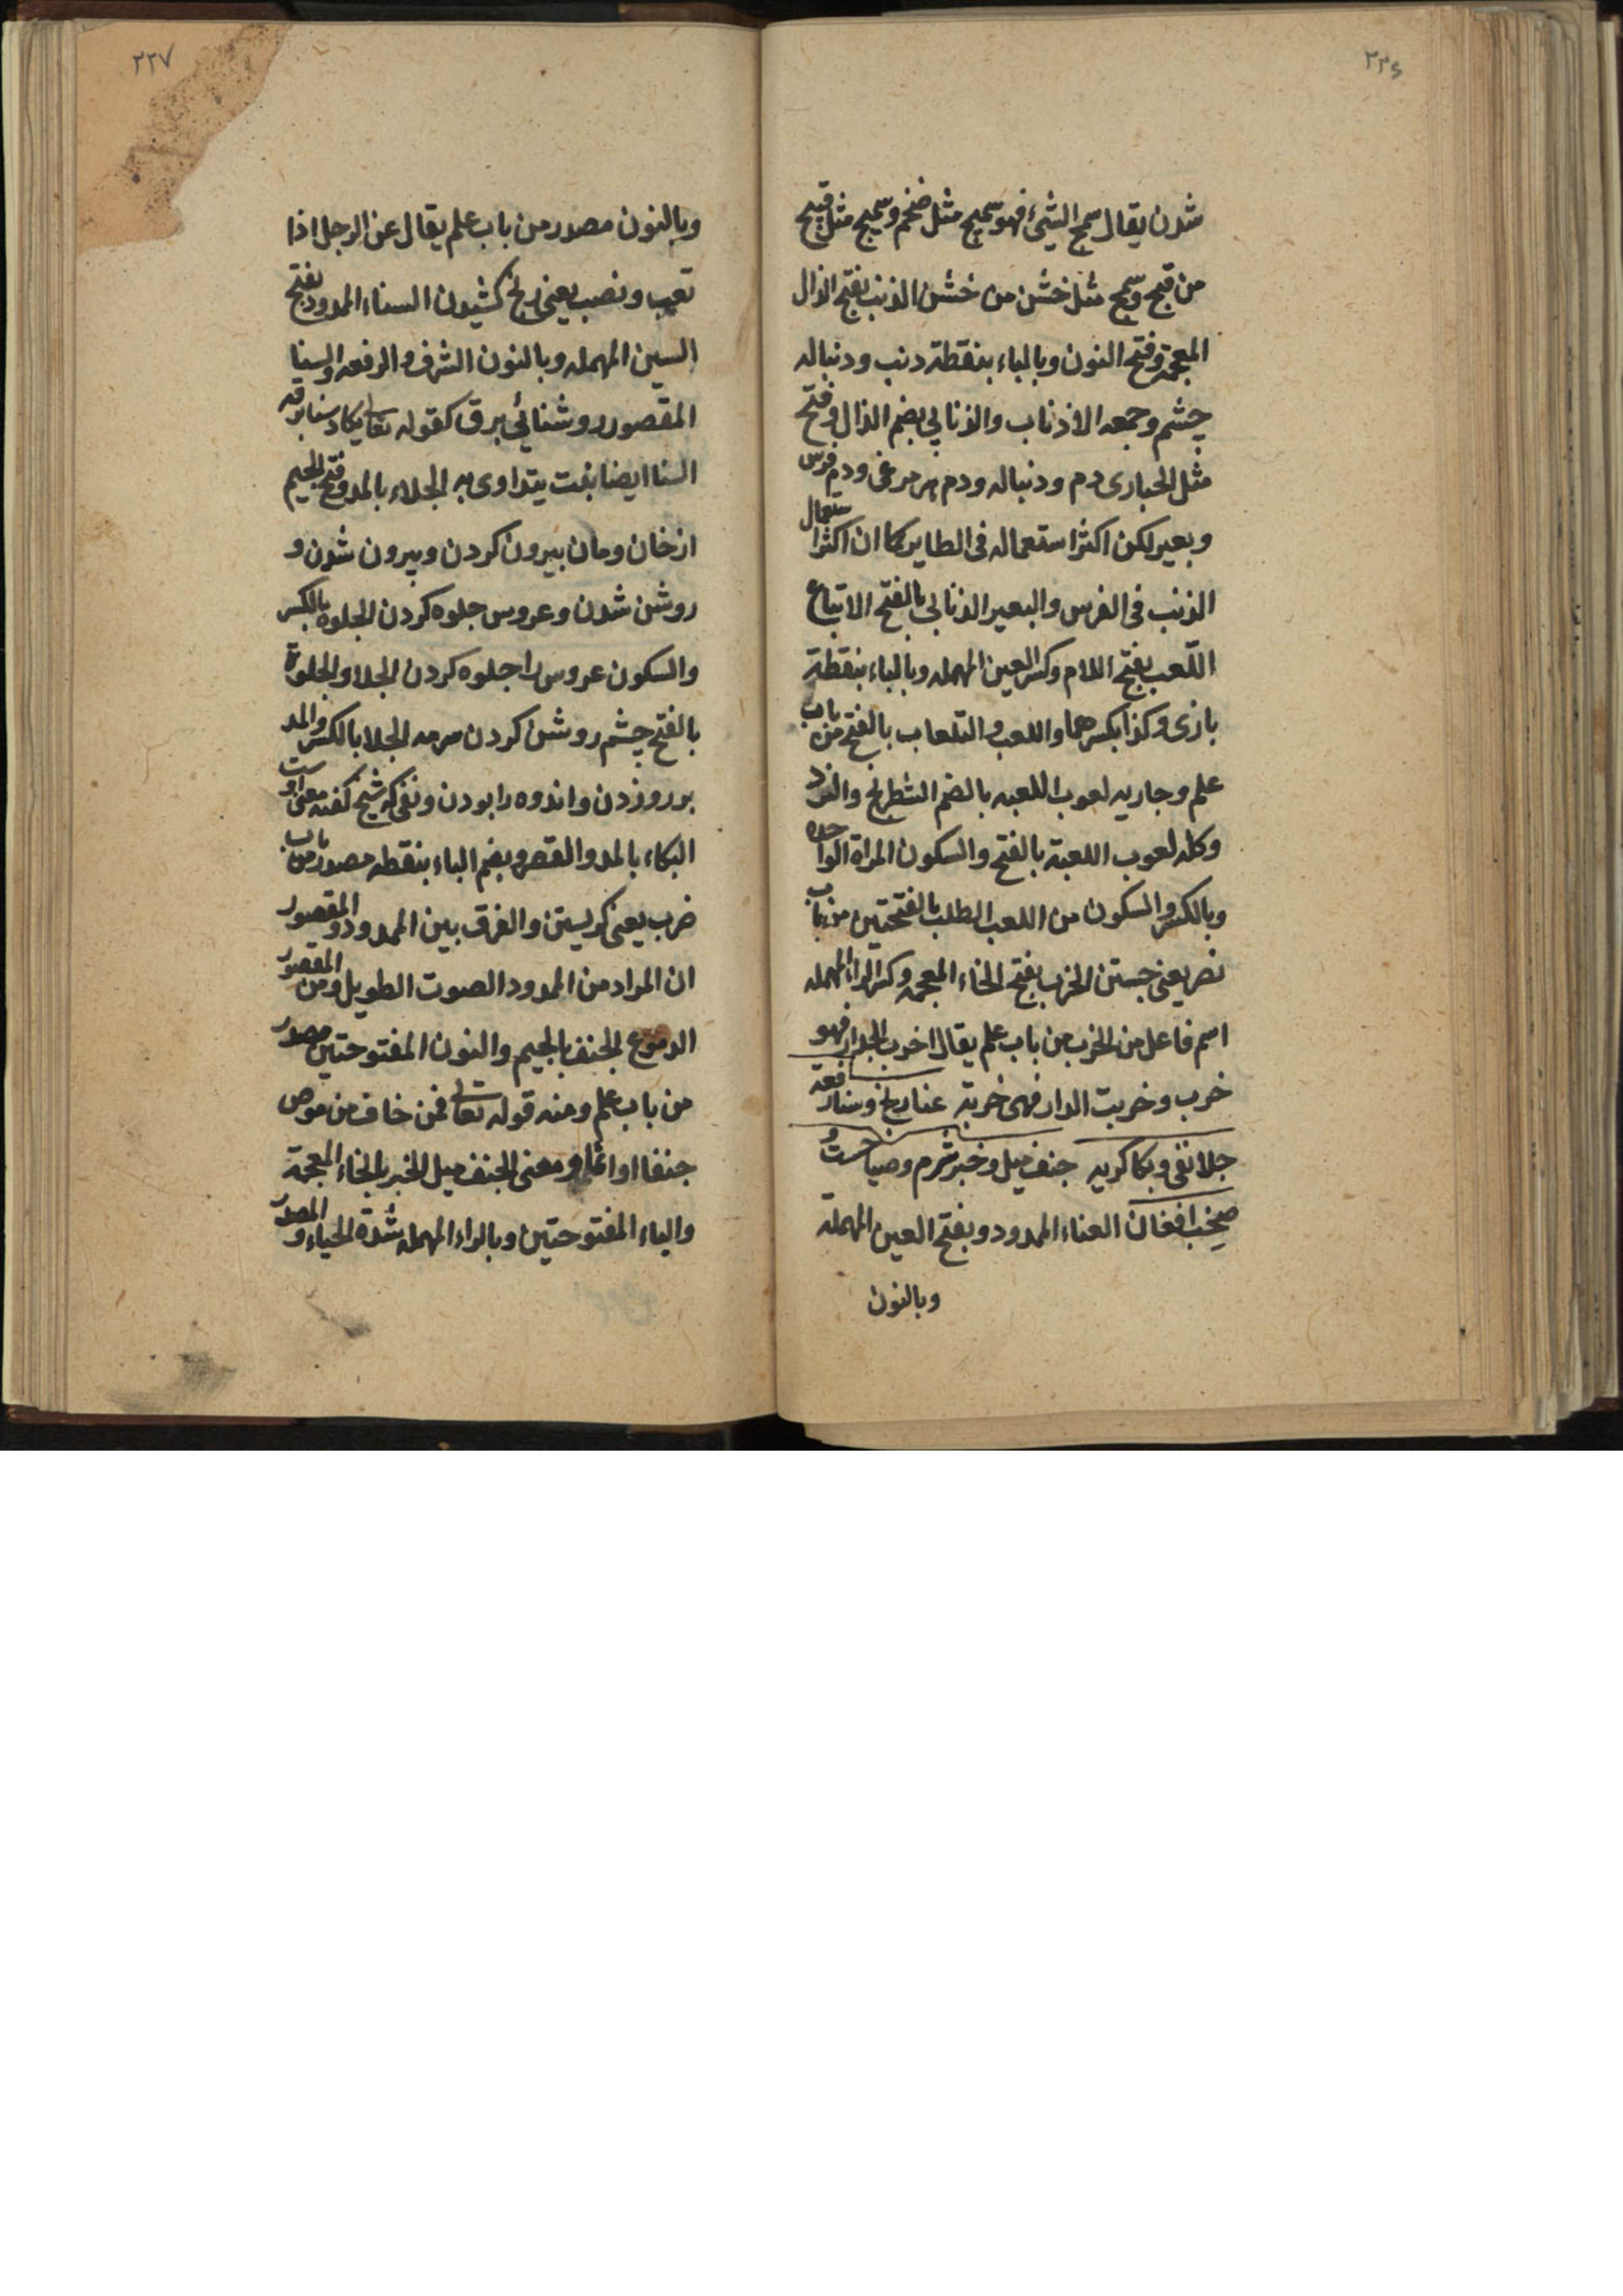 ٢٣٦
شدن يقال سمج الشيء فهو سمج مثل ضخم وسميج مثل قبيح
من قبح وسمج مثل خشن من خشن الذنب بفتح الذال
المعجمة وفتح النون وبالباء بنقطة دنب ودنباله
چشم وجمعه الاذناب والذنابى بضم الذال وفتح
مثل الحبارى دم ودنباله ودم هر مرغى ودم فرس
وبعير لكن اكثر استعماله فى الطاير كما ان اكثر استعمال
الذنب فى الفرس والبعير الذنابى بالفتح الاتباع
اللّعب بفتح اللام وكسر العين المهمله وبالباء بنقطة
بازى وكذا بكسرهما واللعب والتلعاب بالفتح من باب
علم وجاريه لعوب اللعبه بالضم الشطرنج والنرد
وكله لعوب اللعبة بالفتح والسكون المراة الواحده
وبالكسر والسكون من اللعب الطلب بالفتحتين من باب
نصر يعنى جستن الخرب بفتح الخاء المعجمه وكسر الراء المهمله
اسم فاعل من الخرب من باب علم يقال اخرب الجدار فهو
خرب وخربت الدار فهى خربة عنا رنج وسنا رفعة
جلا نفى وبكا كريه جنف ميل وخبر شرم وصياحست و
صخب افغان العناء الممدود وبفتح العين المهملة
وبالنون
٢٣٧
وبالنون مصدر من باب علم يقال عنى الرجل اذا
تعب ونصب يعنى رنج كشيدن السناء الممدود بفتح
السين المهمله وبالنون الشرف والرفعه والسنا
المقصور روشنائى برق كقوله تعالى يكاد سنا برقه
السنا ايضا نبت يتداوى به الجلاء بالمد وفتح الجيم
از خان ومان بيرون كردن وبيرون شدن و
روشن شدن وعروس جلوه كردن الجلوه بالكسر
والسكون عروس را جلوه كردن الجلا والجلوة
بالفتح چشم روشن كردن سرمه الجلا بالكسر والمد
زدن واندوه را بودن ونفى كه شيخ كفته معنى اوست
البكاء بالمد والقصر وبضم الباء بنقطه مصدر من باب
ضرب يعنى كريستن والفرق بين الممدود والمقصور
ان المراد من الممدود الصوت الطويل ومن المقصور
الدموع الجنف بالجيم والنون المفتوحتين مصدر
من باب علم ومنه قوله تعالى فمن خاف من موص
جنفا او اثما ومعنى الجنف ميل الخبر بالخاء المعجمة
والباء المفتوحتين وبالراء المهمله شدة الحياء والمصدر